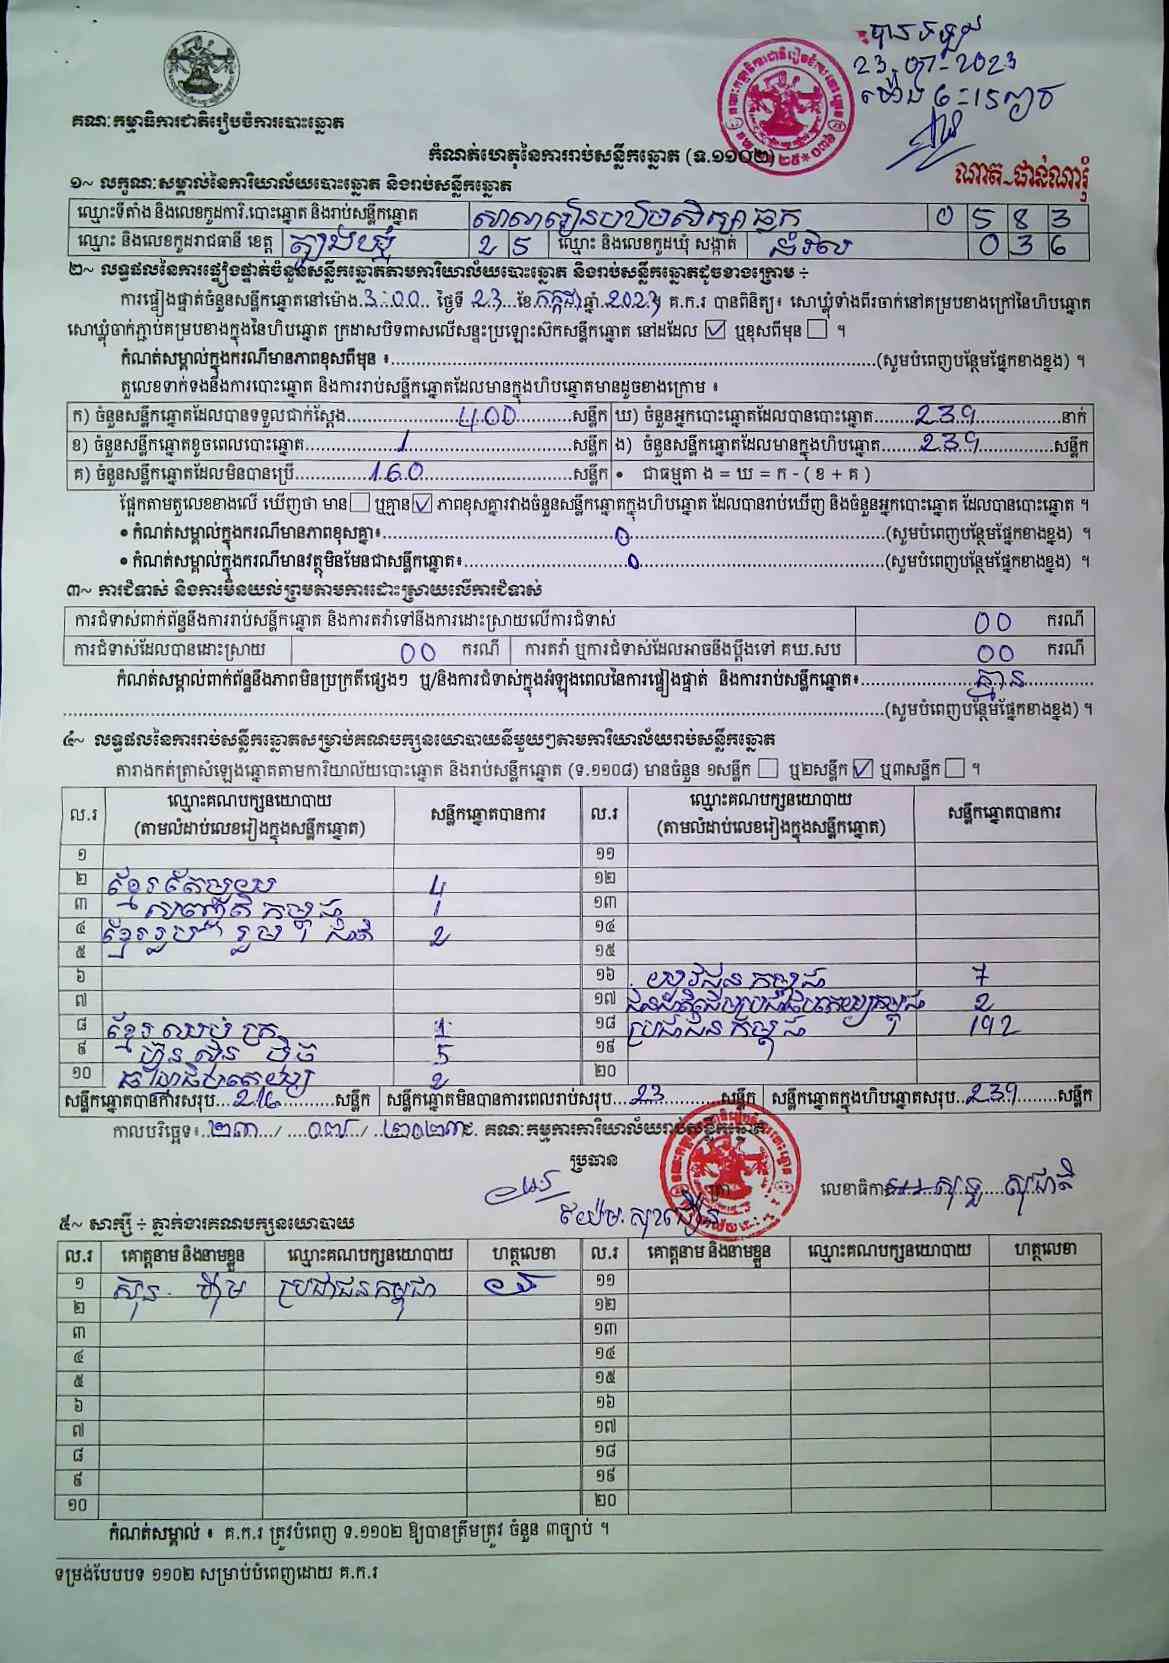 បានទទួល
23, ៧-2023
ម៉ោង 6-15 ល្ងាច
គណៈកម្មាធិការជាតិរៀបចំការបោះឆ្នោត
កំណត់ហេតុនៃការរាប់សន្លឹកឆ្នោត (ទ.១១០២)
ណាត-ផាន់ណារុំ
១~ លក្ខណៈសម្គាល់នៃការិយាល័យបោះឆ្នោត និងរាប់សន្លឹកឆ្នោត
ឈ្មោះទីតាំង និងលេខកូដការិ.បោះឆ្នោត និងរាប់សន្លឹកឆ្នោត សាលារៀនបឋមសិក្សា 0 5 8 3
ឈ្មោះ និងលេខកូដរាជធានី ខេត្ត ត្បូងឃ្មុំ 2 5 ឈ្មោះ និងលេខកូដឃុំ សង្កាត់ 0 3 6
២~ លទ្ធផលនៃការផ្ទៀងផ្ទាត់ចំនួនសន្លឹកឆ្នោតតាមការិយាល័យបោះឆ្នោត និងរាប់សន្លឹកឆ្នោតដូចខាងក្រោម ÷
ការផ្ទៀងផ្ទាត់ចំនួនសន្លឹកឆ្នោតនៅម៉ោង 3:00 ថ្ងៃទី 23 ខែ កក្កដា ឆ្នាំ 2023 គ.ក.រ បានពិនិត្យ៖ សោឃ្លុំទាំងពីរចាក់នៅគម្របខាងក្រៅនៃហិបឆ្នោត
សោឃ្លុំចាក់ភ្ជាប់គម្របខាងក្នុងនៃហិបឆ្នោត ក្រដាសបិទពាសលើសន្ទះប្រឡោះសិកសន្លឹកឆ្នោត នៅដដែល ☑ ឬខុសពីមុន ☐ ។
កំណត់សម្គាល់ក្នុងករណីមានភាពខុសពីមុន ៖ (សូមបំពេញបន្ថែមផ្នែកខាងខ្នង) ។
តួលេខទាក់ទងនឹងការបោះឆ្នោត និងការរាប់សន្លឹកឆ្នោតដែលមានក្នុងហិបឆ្នោតមានដូចខាងក្រោម ៖
ក) ចំនួនសន្លឹកឆ្នោតដែលបានទទួលជាក់ស្តែង 400 សន្លឹក ឃ) ចំនួនអ្នកបោះឆ្នោតដែលបានបោះឆ្នោត 239 នាក់
ខ) ចំនួនសន្លឹកឆ្នោតខូចពេលបោះឆ្នោត 1 សន្លឹក ង) ចំនួនសន្លឹកឆ្នោតដែលមានក្នុងហិបឆ្នោត 239 សន្លឹក
គ) ចំនួនសន្លឹកឆ្នោតដែលមិនបានប្រើ 160 សន្លឹក • ជាធម្មតា ង = ឃ = ក - ( ខ + គ )
ផ្អែកតាមតួលេខខាងលើ ឃើញថា មាន ☐ ឬគ្មាន ☑ ភាពខុសគ្នារវាងចំនួនសន្លឹកឆ្នោតក្នុងហិបឆ្នោត ដែលបានរាប់ឃើញ និងចំនួនអ្នកបោះឆ្នោត ដែលបានបោះឆ្នោត ។
• កំណត់សម្គាល់ក្នុងករណីមានភាពខុសគ្នា៖ 0 (សូមបំពេញបន្ថែមផ្នែកខាងខ្នង) ។
• កំណត់សម្គាល់ក្នុងករណីមានវត្ថុមិនមែនជាសន្លឹកឆ្នោត៖ 0 (សូមបំពេញបន្ថែមផ្នែកខាងខ្នង) ។
៣~ ការជំទាស់ និងការមិនយល់ព្រមតាមការដោះស្រាយលើការជំទាស់
ការជំទាស់ពាក់ព័ន្ធនឹងការរាប់សន្លឹកឆ្នោត និងការតវ៉ាទៅនឹងការដោះស្រាយលើការជំទាស់ 00 ករណី
ការជំទាស់ដែលបានដោះស្រាយ 00 ករណី ការតវ៉ា ឬការជំទាស់ដែលអាចនឹងប្តឹងទៅ គឃ.សប 00 ករណី
កំណត់សម្គាល់ពាក់ព័ន្ធនឹងភាពមិនប្រក្រតីផ្សេងៗ ឬ/និងការជំទាស់ក្នុងអំឡុងពេលនៃការផ្ទៀងផ្ទាត់ និងការរាប់សន្លឹកឆ្នោត៖ គ្មាន
(សូមបំពេញបន្ថែមផ្នែកខាងខ្នង) ។
៤~ លទ្ធផលនៃការរាប់សន្លឹកឆ្នោតសម្រាប់គណបក្សនយោបាយនីមួយៗតាមការិយាល័យរាប់សន្លឹកឆ្នោត
តារាងកត់ត្រាសំឡេងឆ្នោតតាមការិយាល័យបោះឆ្នោត និងរាប់សន្លឹកឆ្នោត (ទ.១១០៨) មានចំនួន ១សន្លឹក ☐ ឬ២សន្លឹក ☑ ឬ៣សន្លឹក ☐ ។
ល.រ ឈ្មោះគណបក្សនយោបាយ (តាមលំដាប់លេខរៀងក្នុងសន្លឹកឆ្នោត) សន្លឹកឆ្នោតបានការ ល.រ ឈ្មោះគណបក្សនយោបាយ (តាមលំដាប់លេខរៀងក្នុងសន្លឹកឆ្នោត) សន្លឹកឆ្នោតបានការ
១ ១១
២ ខ្មែរតែមួយ 4 ១២
៣ សញ្ជាតិកម្ពុជា 1 ១៣
៤ ខ្មែររួបរួមជាតិ 2 ១៤
៥ ១៥
៦ ១៦ យុវជនកម្ពុជា 7
៧ ១៧ ជនជាតិដើមប្រជាធិបតេយ្យកម្ពុជា 2
៨ ខ្មែរឈប់ក្រ 1 ១៨ ប្រជាជនកម្ពុជា 192
៩ ហ៊្វុនស៊ិនប៉ិច 5 ១៩
១០ ធម្មាធិបតេយ្យ 2 ២០
សន្លឹកឆ្នោតបានការសរុប 216 សន្លឹក សន្លឹកឆ្នោតមិនបានការពេលរាប់សរុប 23 សន្លឹក សន្លឹកឆ្នោតក្នុងហិបឆ្នោតសរុប 239 សន្លឹក
កាលបរិច្ឆេទ៖ ២៣ / ០៧ / ២០២៣ គណៈកម្មការការិយាល័យរាប់សន្លឹកឆ្នោត
ប្រធាន
លេខាធិការ សុជាតិ
៥~ សាក្សី ÷ ភ្នាក់ងារគណបក្សនយោបាយ
ល.រ គោត្តនាម និងនាមខ្លួន ឈ្មោះគណបក្សនយោបាយ ហត្ថលេខា ល.រ គោត្តនាម និងនាមខ្លួន ឈ្មោះគណបក្សនយោបាយ ហត្ថលេខា
១ ស៊ុន ហ៊ឹម ប្រជាជនកម្ពុជា ១១
២ ១២
៣ ១៣
៤ ១៤
៥ ១៥
៦ ១៦
៧ ១៧
៨ ១៨
៩ ១៩
១០ ២០
កំណត់សម្គាល់ ៖ គ.ក.រ ត្រូវបំពេញ ទ.១១០២ ឱ្យបានត្រឹមត្រូវ ចំនួន ៣ច្បាប់ ។
ទម្រង់បែបបទ ១១០២ សម្រាប់បំពេញដោយ គ.ក.រ